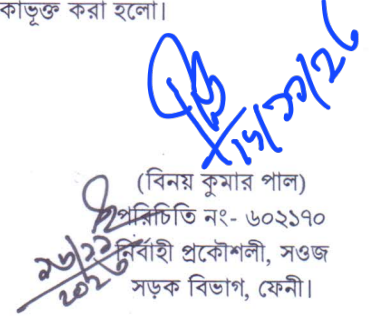 কাভূক্ত করা হলো।
(বিনয় কুমার পাল)
পরিচিতি নং- ৬০২১৭০
নির্বাহী প্রকৌশলী, সওজ
সড়ক বিভাগ, ফেনী।